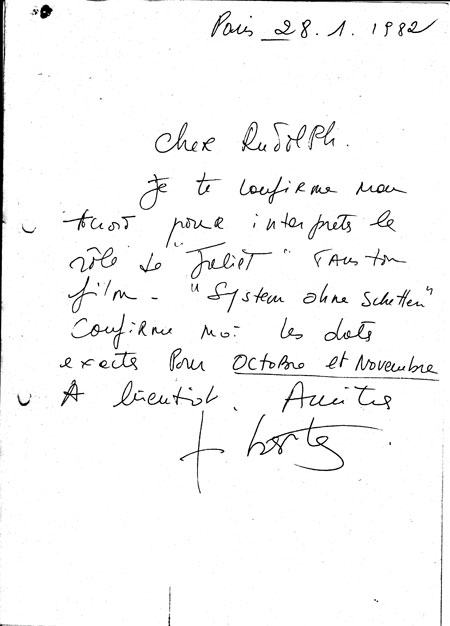 Paris 28.1.1982
Cher Rudolph.
Je te confirme mon
accord pour interpréter le
rôle de "Juliet" dans ton
film - "System ohne Schatten"
Confirme moi les dates
exactes pour Octobre et Novembre
A bientôt. Amitiés